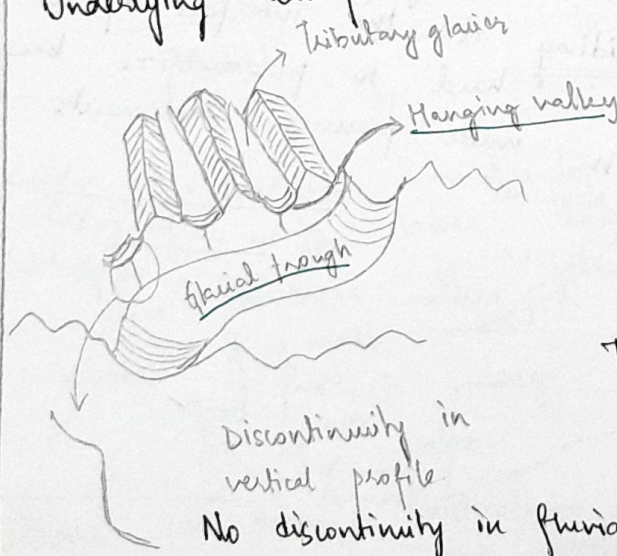 Underlying
Tributary glacier
Hanging valley
Glacial trough
Discontinuity in
vertical profile
No discontinuity in fluvia